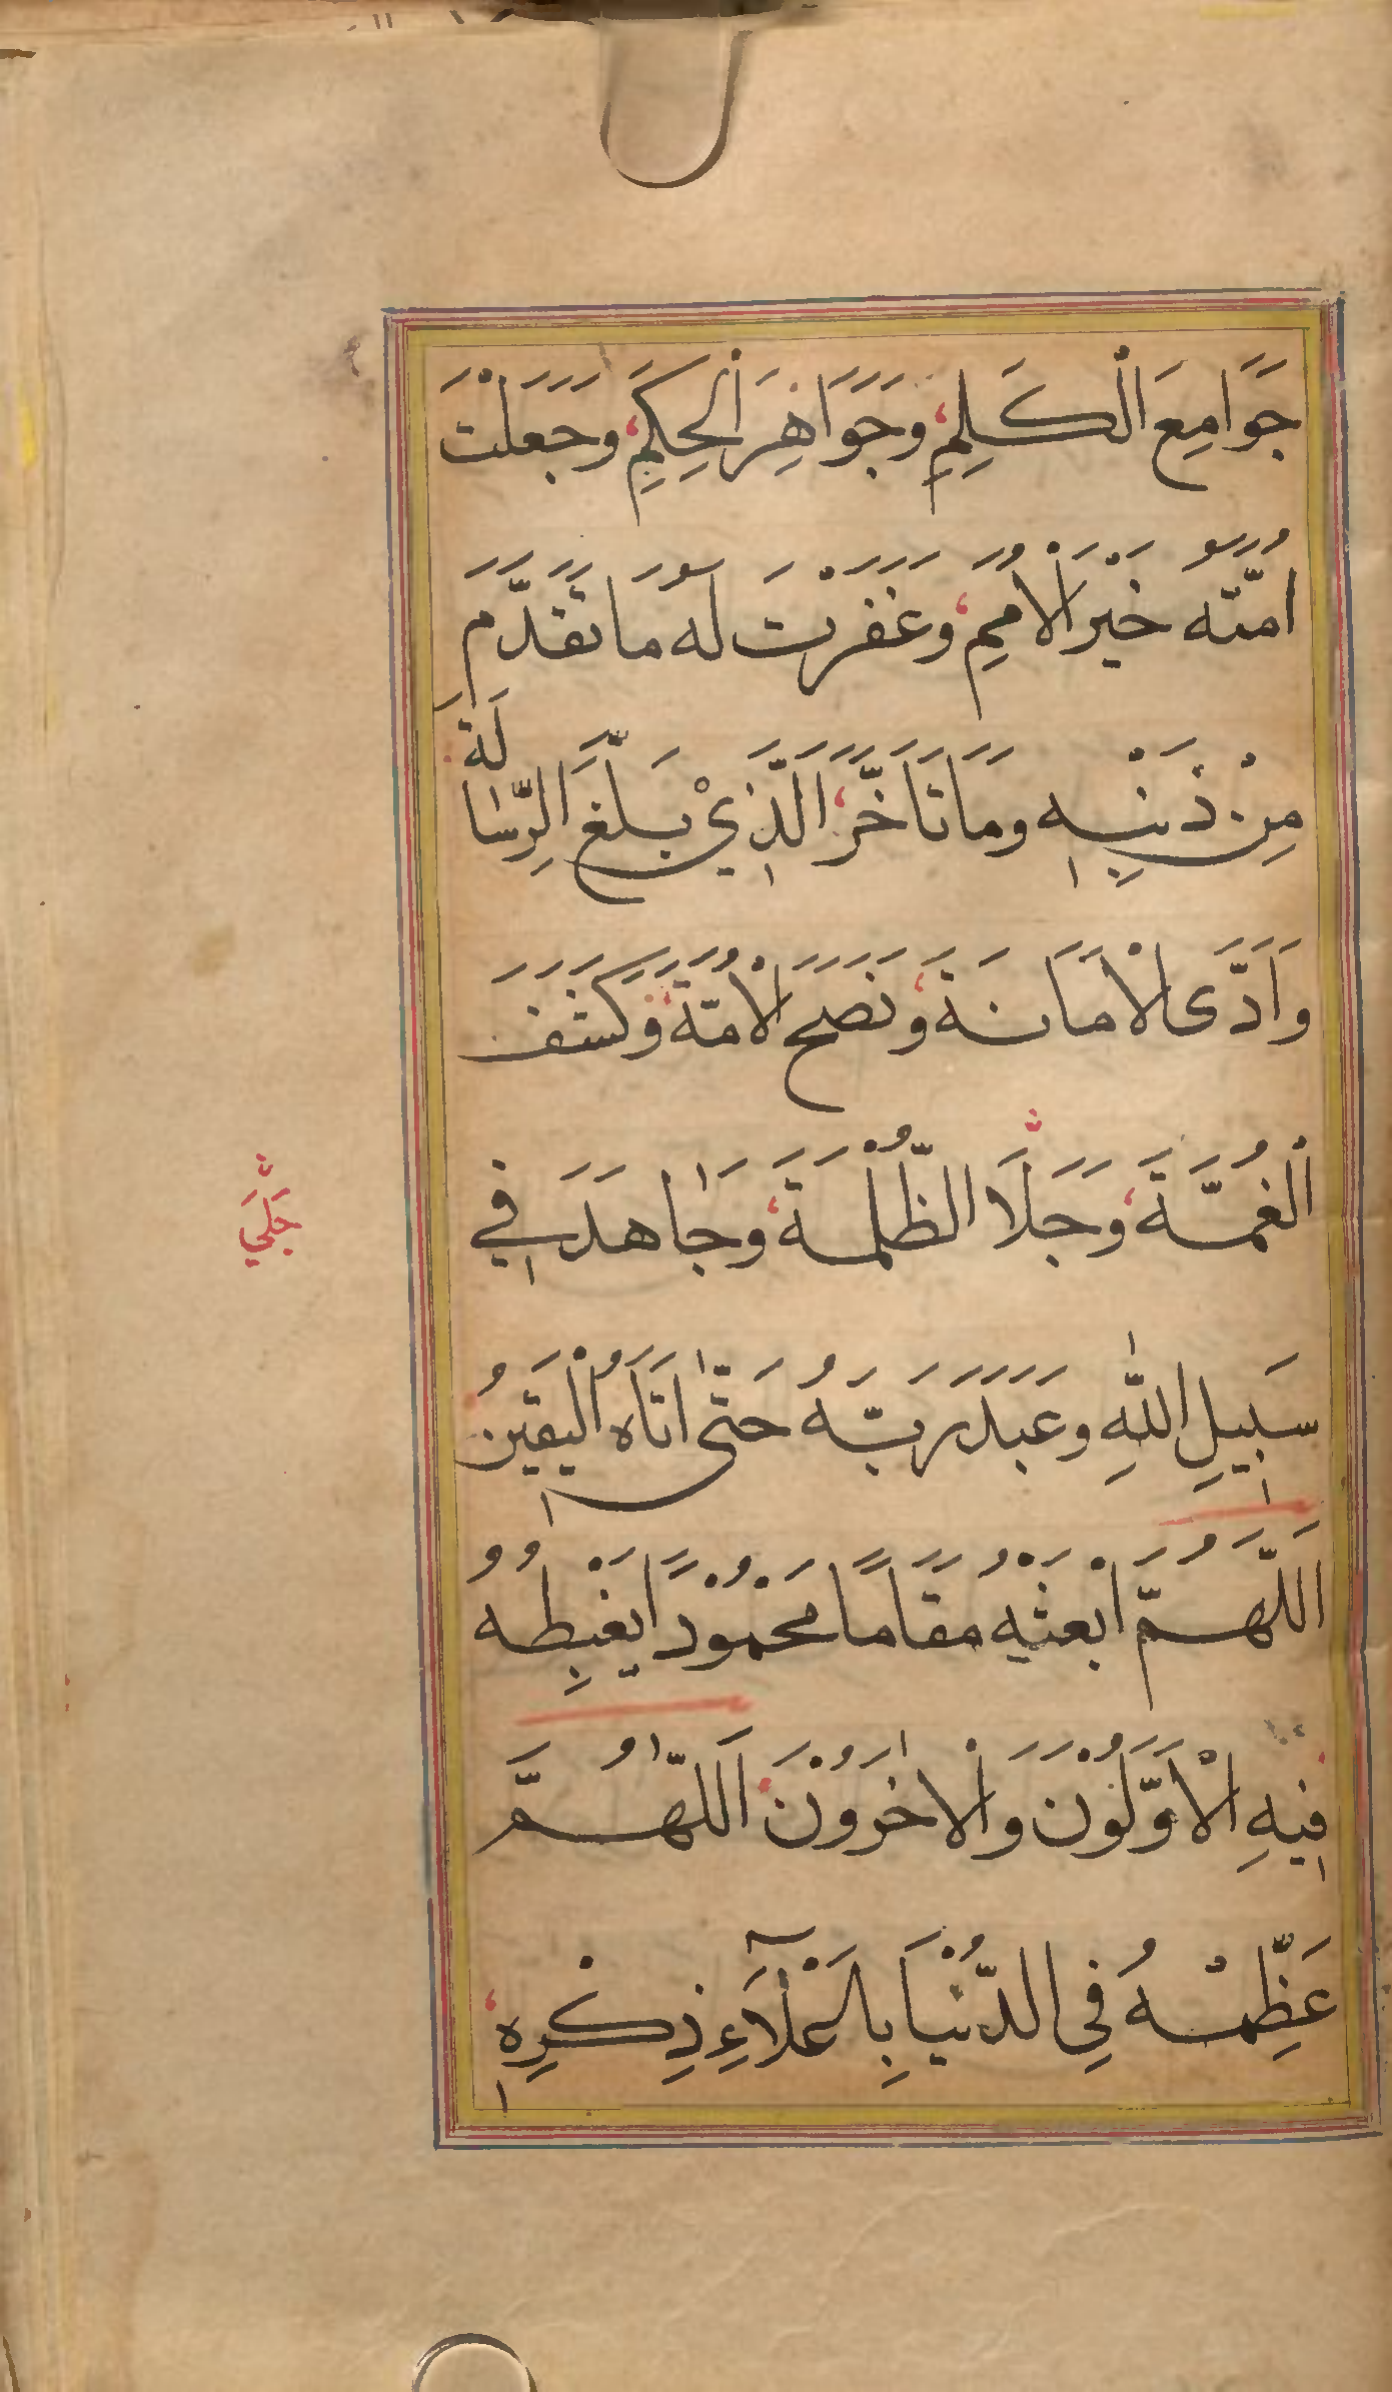 جَوَامِعَ الْكَلِمِ، وَجَوَاهِرَ الْحِكَمِ، وَجَعَلْتَ
اُمَّتَهُ خَيْرَ الْاُمَمِ، وَغَفَرْتَ لَهُ مَا تَقَدَّمَ
مِنْ ذَنْبِهٖ وَمَا تَاَخَّرَ، الَّذِيْ بَلَّغَ الرِّسَالَةَ
وَاَدَّى الْاَمَانَةَ، وَنَصَحَ الْاُمَّةَ، وَكَشَفَ
الْغُمَّةَ، وَجَلَا الظُّلْمَةَ، وَجَاهَدَ فِي
سَبِيلِ اللّٰهِ وَعَبَدَ رَبَّهُ حَتّٰى اَتَاهُ الْيَقِينُ
اَللّٰهُمَّ ابْعَثْهُ مَقَامًا مَحْمُوْدًا يَغْبِطُهُ
فِيهِ الْاَوَّلُوْنَ وَالْاٰخِرُوْنَ اَللّٰهُمَّ
عَظِّمْهُ فِي الدُّنْيَا بِاِعْلَآءِ ذِكْرِهٖ،
جَلّٰي